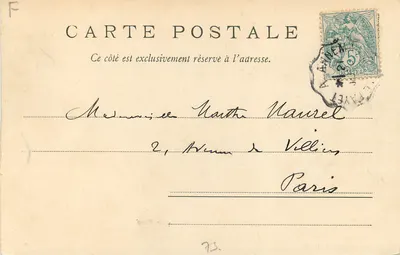 F
CARTE POSTALE
Ce côté est exclusivement réservé à l'adresse.
Mademoiselle Marthe Maurel
2, Avenue de Villiers
Paris